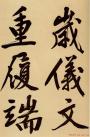 歳儀文
重履端